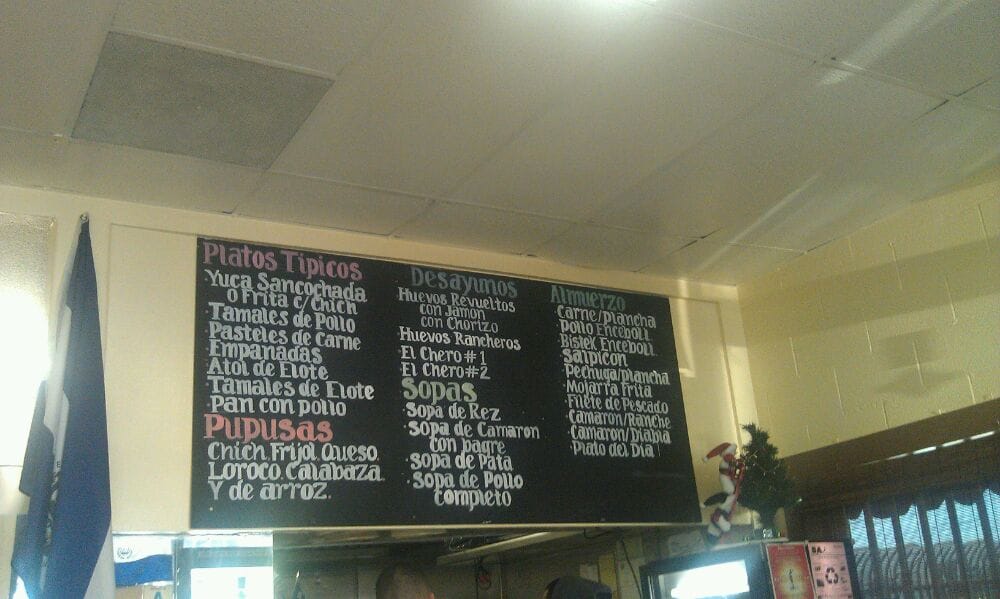 Platos Tipicos
Yuca Sancochada
o Frita c/chich
Tamales de Pollo
Pasteles de carne
Empanadas
Atol de Elote
Tamales de Elote
Pan con pollo
Pupusas
Chich, Frijol, Queso.
Loroco, Calabaza
Y de arroz.
Desayunos
Huevos Revueltos
con Jamon
con Chorizo
Huevos Rancheros
El Chero #1
El Chero #2
Sopas
Sopa de Rez
Sopa de Camaron
con bagre
Sopa de Pata
Sopa de Pollo
completo
Almuerzo
Carne/plancha
Pollo Enceboll.
Bistek Enceboll.
Salpicon
Pechuga/plancha
Mojarra Frita
Filete de Pescado
Camaron/Ranche
Camaron/Diabla
Plato del Dia!